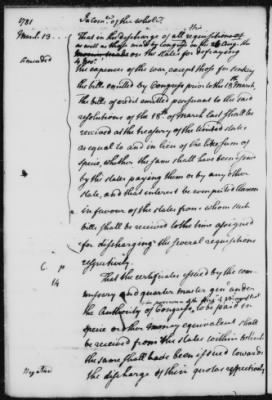 1781 In com.ee of the whole.
March. 13. That in the discharge of all requisitions
as well as those made by congress on the Aug. the
on the states for defraying
Amended
the expences of the war, except those for sinking
the bills emitted by Congress prior to the 18th March,
the bills of credit emitted pursuant to the said
resolutions of the 18th of March last shall be
received at the treasury of the United states
as equal to and in lieu of the like sum of
specie, whether the same shall have been issued
by the states paying them or by any other
state, and that interest be computed thereon
in favour of the states from whom such
bills shall be received to the time assigned
for discharging the several requisitions
respectively.
That the certificates issued by the com-
missary and quarter master gen. under
the authority of Congress, to be paid in
specie or other money equivalent shall
be received from the states within which
the same shall have been issued towards
Negative the discharge of their quotas respectively